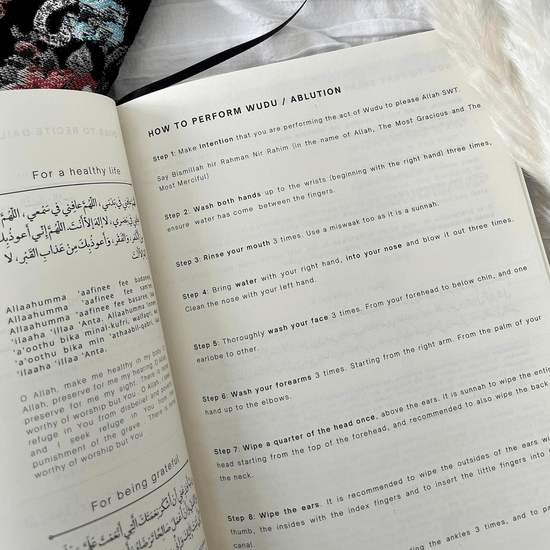 For a healthy life
عافني في سمعي، اللهم
لا إله إلا أنت، اللهم إني أعوذ بك
والفقر، وأعوذ بك من عذاب القبر، لا
إلا أنت
Allaahumma 'aafinee fee badanee,
Allaahumma 'aafinee fee
Allaahumma 'aafinee fee
'ilaaha 'illaa 'Anta. Allaahumma
'a'oothu bika minal-kufri, walfaqri,
'a'oothu bika min 'athaabil-qabri,
'ilaaha 'illaa 'Anta.
O Allah, make me healthy in my body.
Allah, preserve for me my hearing. O Allah,
preserve for me my sight. There is none
worthy of worship but You. O Allah, I seek
refuge in You from disbelief and poverty
and I seek refuge in You from the
punishment of the grave. There is none
worthy of worship but You
For being grateful
HOW TO PERFORM WUDU / ABLUTION
Step 1: Make Intention that you are performing the act of Wudu to please Allah SWT.
Say Bismillah hir Rahman Nir Rahim (in the name of Allah, The Most Gracious and The
Most Merciful)
Step 2: Wash both hands up to the wrists (beginning with the right hand) three times,
ensure water has come between the fingers.
Step 3: Rinse your mouth 3 times. Use a miswaak too as it is a sunnah.
Step 4: Bring water with your right hand, into your nose and blow it out three times.
Clean the nose with your left hand.
Step 5: Thoroughly wash your face 3 times. From your forehead to below chin, and one
earlobe to other.
Step 6: Wash your forearms 3 times. Starting from the right arm. From the palm of your
hand up to the elbows.
Step 7: Wipe a quarter of the head once, above the ears. It is sunnah to wipe the entire
head starting from the top of the forehead, and recommended also to wipe the back
the neck.
Step 8: Wipe the ears. It is recommended to wipe the outsides of the ears
thumb, the insides with the index fingers and to insert the little fingers into
canal.
the ankles 3 times, and to